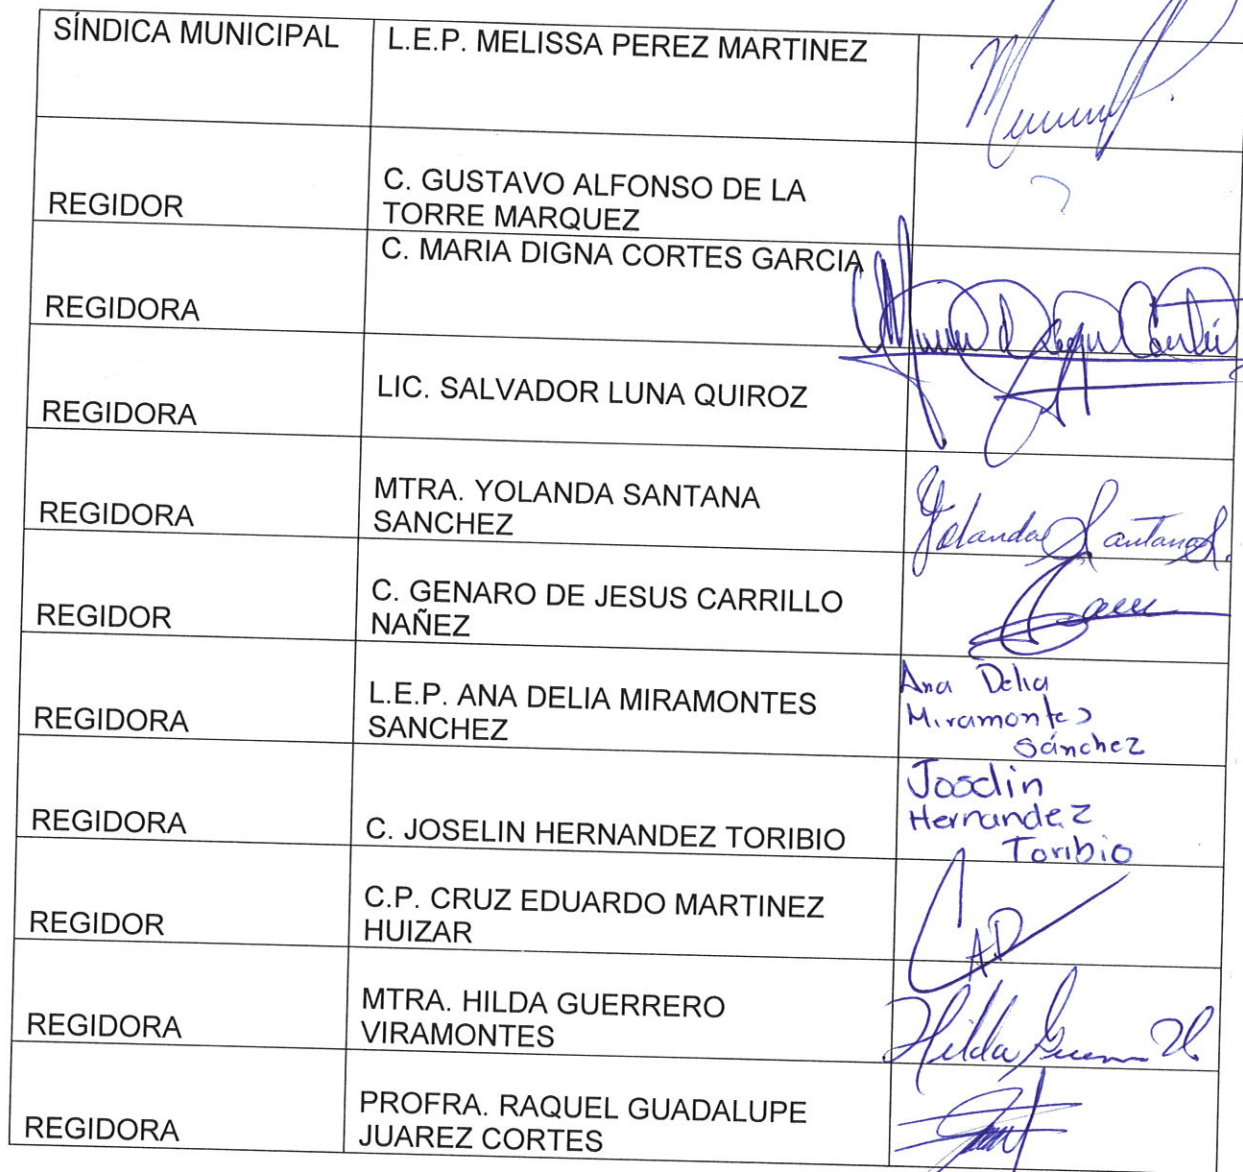 SÍNDICA MUNICIPAL
L.E.P. MELISSA PEREZ MARTINEZ
REGIDOR
C. GUSTAVO ALFONSO DE LA
TORRE MARQUEZ
REGIDORA
C. MARIA DIGNA CORTES GARCIA
REGIDORA
LIC. SALVADOR LUNA QUIROZ
REGIDORA
MTRA. YOLANDA SANTANA
SANCHEZ
Yolanda Santana S.
REGIDOR
C. GENARO DE JESUS CARRILLO
NAÑEZ
REGIDORA
L.E.P. ANA DELIA MIRAMONTES
SANCHEZ
Ana Delia
Miramontes
Sánchez
REGIDORA
C. JOSELIN HERNANDEZ TORIBIO
Joselin
Hernandez
Toribio
REGIDOR
C.P. CRUZ EDUARDO MARTINEZ
HUIZAR
REGIDORA
MTRA. HILDA GUERRERO
VIRAMONTES
Hilda
REGIDORA
PROFRA. RAQUEL GUADALUPE
JUAREZ CORTES